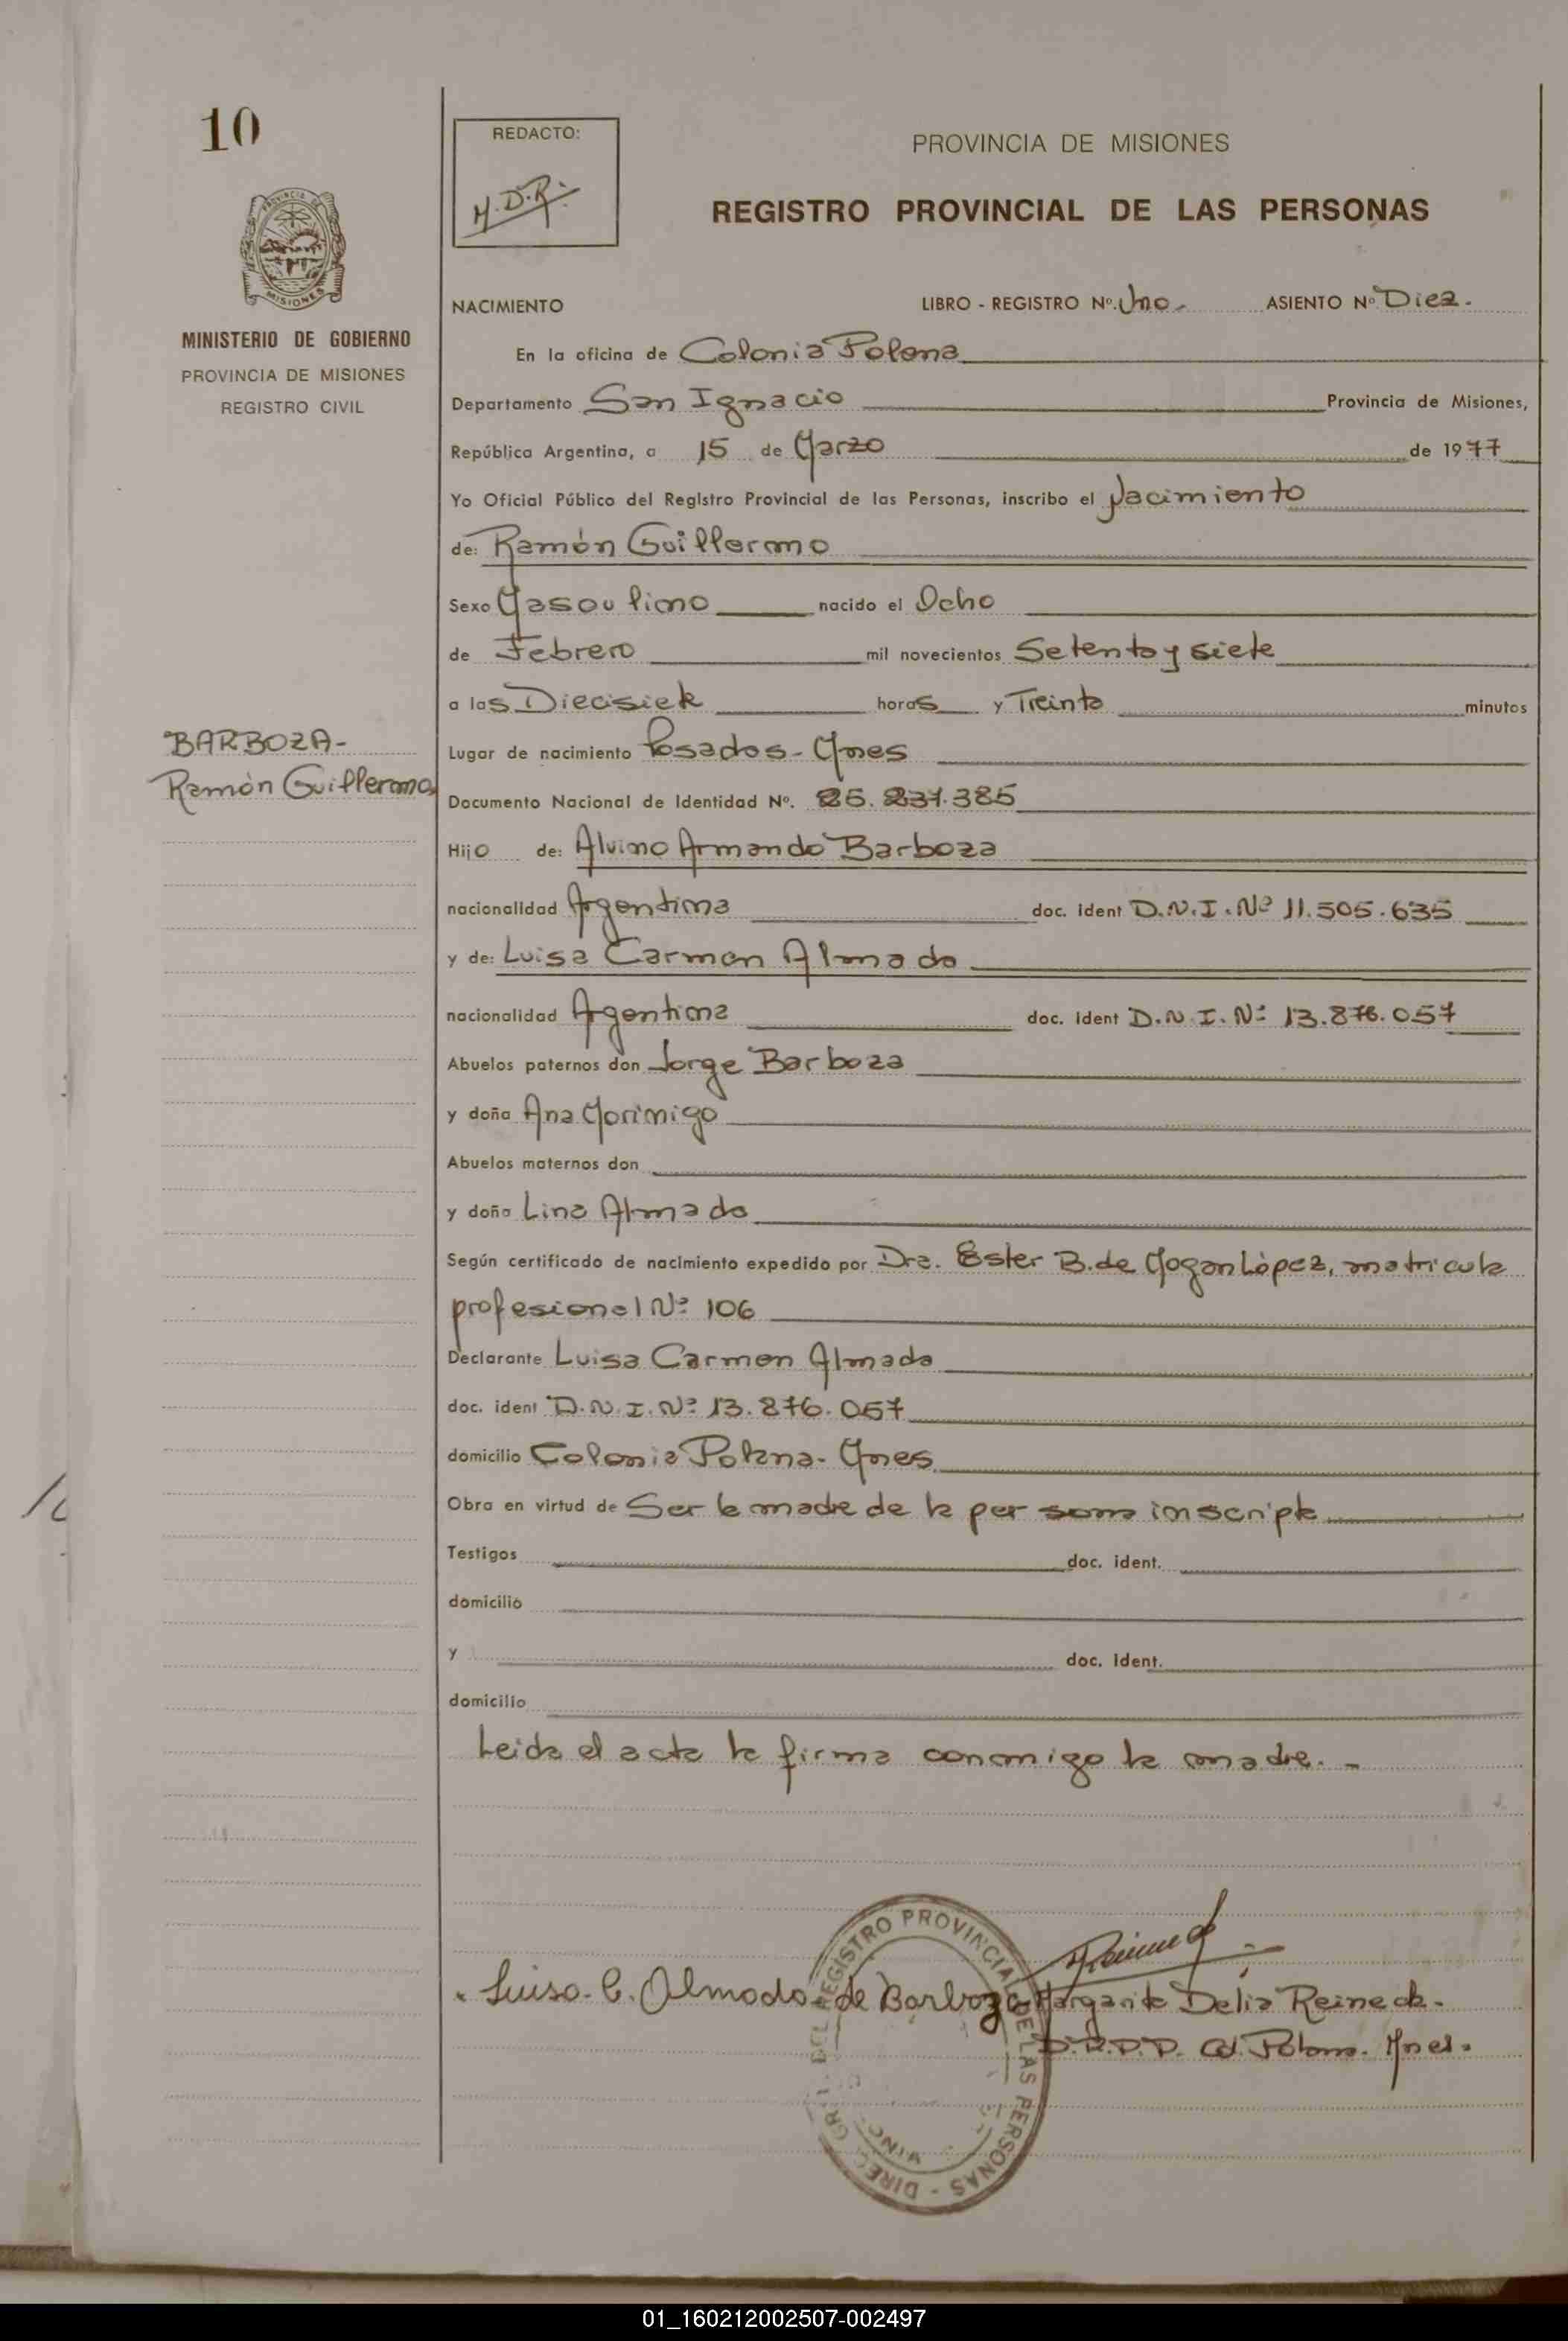 10
REDACTO:
M.D.R.
PROVINCIA DE MISIONES
REGISTRO PROVINCIAL DE LAS PERSONAS
PROVINCIA DE
MISIONES
MINISTERIO DE GOBIERNO
PROVINCIA DE MISIONES
REGISTRO CIVIL
NACIMIENTO LIBRO - REGISTRO Nº. Uno.- ASIENTO Nº Diez.
En la oficina de Colonia Polana
Departamento San Ignacio Provincia de Misiones,
República Argentina, a 15 de Marzo de 1977
Yo Oficial Público del Registro Provincial de las Personas, inscribo el Nacimiento
de: Ramón Guillermo
Sexo Masculino nacido el Ocho
de Febrero mil novecientos Setenta y siete
a las Diecisiete horas y Treinta minutos
BARBOZA-
Ramón Guillermo
Lugar de nacimiento Posadas - Mnes
Documento Nacional de Identidad Nº. 25.237.385
Hijo de: Alvino Armando Barboza
nacionalidad Argentina doc. ident D.N.I. Nº 11.505.635
y de: Luisa Carmen Almada
nacionalidad Argentina doc. ident D.N.I. Nº 13.876.057
Abuelos paternos don Jorge Barboza
y doña Ana Morinigo
Abuelos maternos don
y doña Lina Almada
Según certificado de nacimiento expedido por Dra. Ester B. de Mogan López, matricula
profesional Nº 106
Declarante Luisa Carmen Almada
doc. ident D.N.I. Nº 13.876.057
domicilio Colonia Polana - Mnes.
Obra en virtud de Ser la madre de la persona inscripta
Testigos doc. ident.
domicilio
y doc. ident.
domicilio
Leida el acta la firma conmigo la madre.-
Luisa C. Almada de Barboza
Margarita Delia Reineck-
D.R.P.P. Col. Polana. Mnes.
DIREC. GRAL. DEL REGISTRO PROVINCIAL DE LAS PERSONAS -
01_160212002507-002497